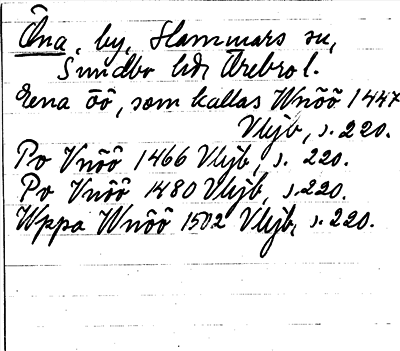 Õna, by, Hammars sn,
Sundbo hd, Örebro l.
Eena öö, som kallas Wnöö 1447
Vkjb, s. 220.
Po Vnöö 1466 Vkjb, s. 220.
Po Vnöö 1480 Vkjb, s. 220.
Wppa Wnöö 1502 Vkjb, s. 220.